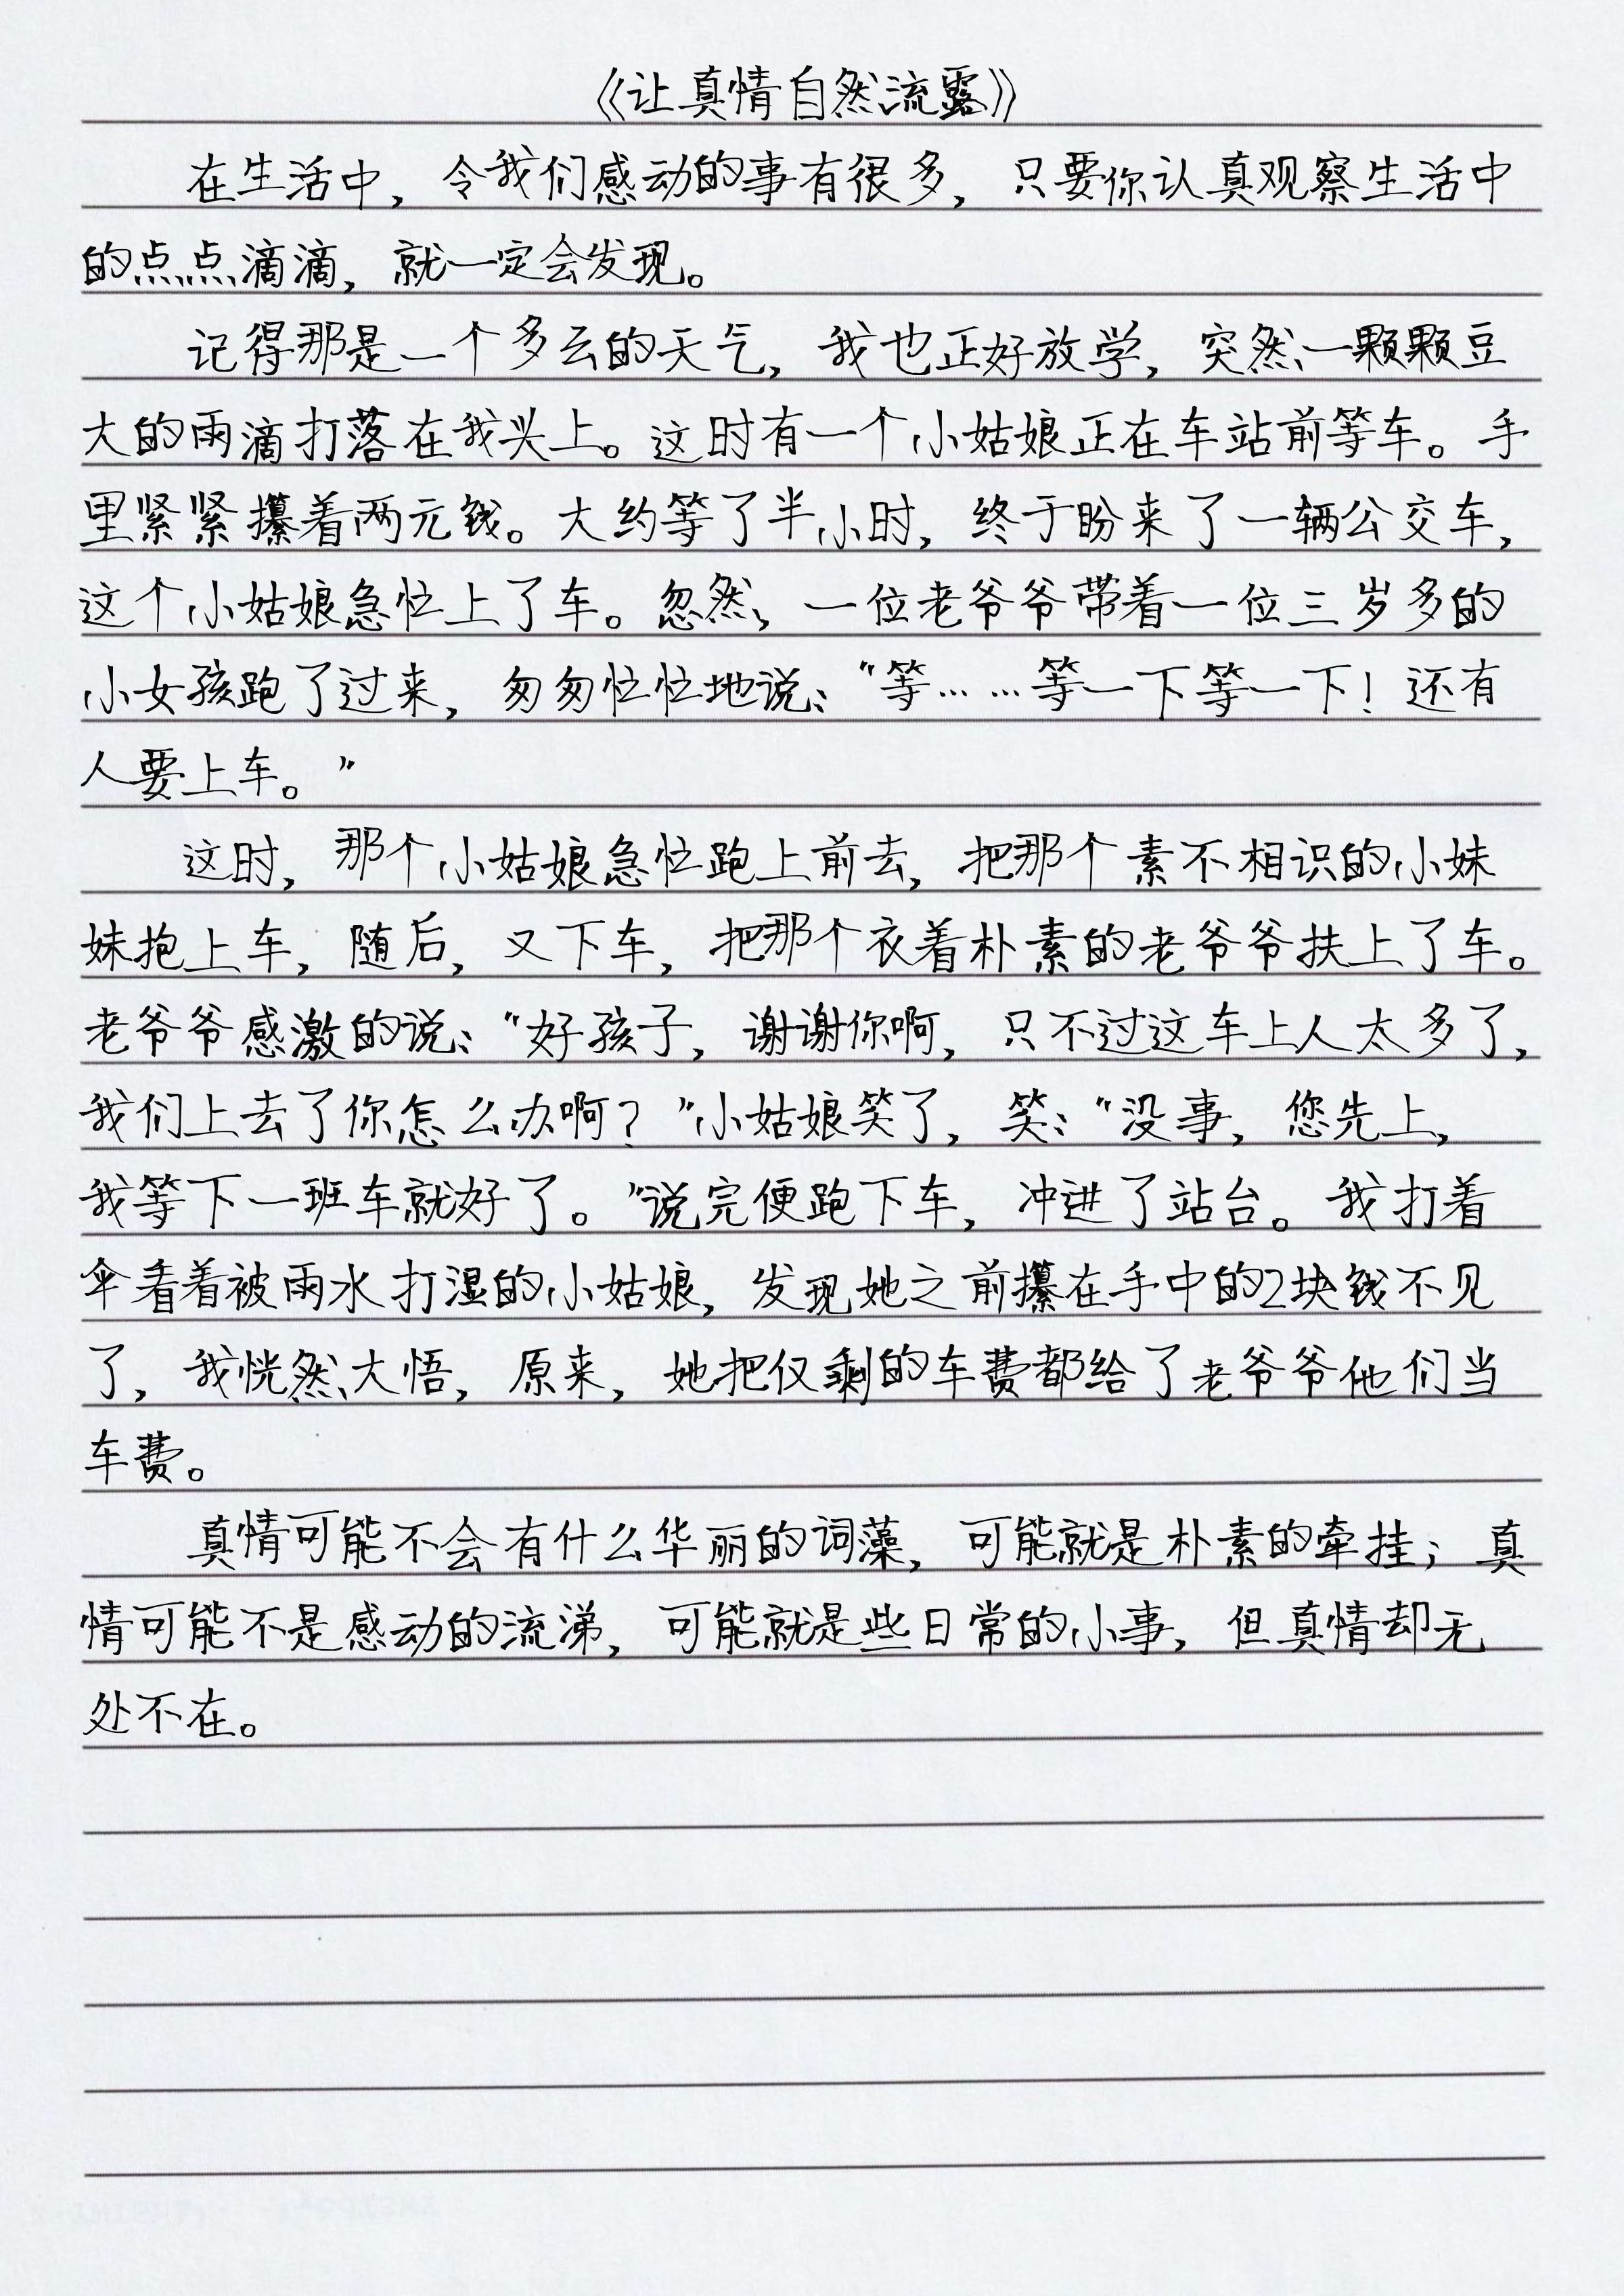 《让真情自然流露》
在生活中，令我们感动的事有很多，只要你认真观察生活中
的点点滴滴，就一定会发现。
记得那是一个多云的天气，我也正好放学，突然一颗颗豆
大的雨滴打落在我头上。这时有一个小姑娘正在车站前等车。手
里紧紧攥着两元钱。大约等了半小时，终于盼来了一辆公交车，
这个小姑娘急忙上了车。忽然，一位老爷爷带着一位三岁多的
小女孩跑了过来，匆匆忙忙地说：“等……等一下等一下！还有
人要上车。”
这时，那个小姑娘急忙跑上前去，把那个素不相识的小妹
妹抱上车，随后，又下车，把那个衣着朴素的老爷爷扶上了车。
老爷爷感激的说：“好孩子，谢谢你啊，只不过这车上人太多了，
我们上去了你怎么办啊？”小姑娘笑了，笑：“没事，您先上，
我等下一班车就好了。”说完便跑下车，冲进了站台。我打着
伞看着被雨水打湿的小姑娘，发现她之前攥在手中的2块钱不见
了，我恍然大悟，原来，她把仅剩的车费都给了老爷爷他们当
车费。
真情可能不会有什么华丽的词藻，可能就是朴素的牵挂；真
情可能不是感动的流涕，可能就是些日常的小事，但真情却无
处不在。